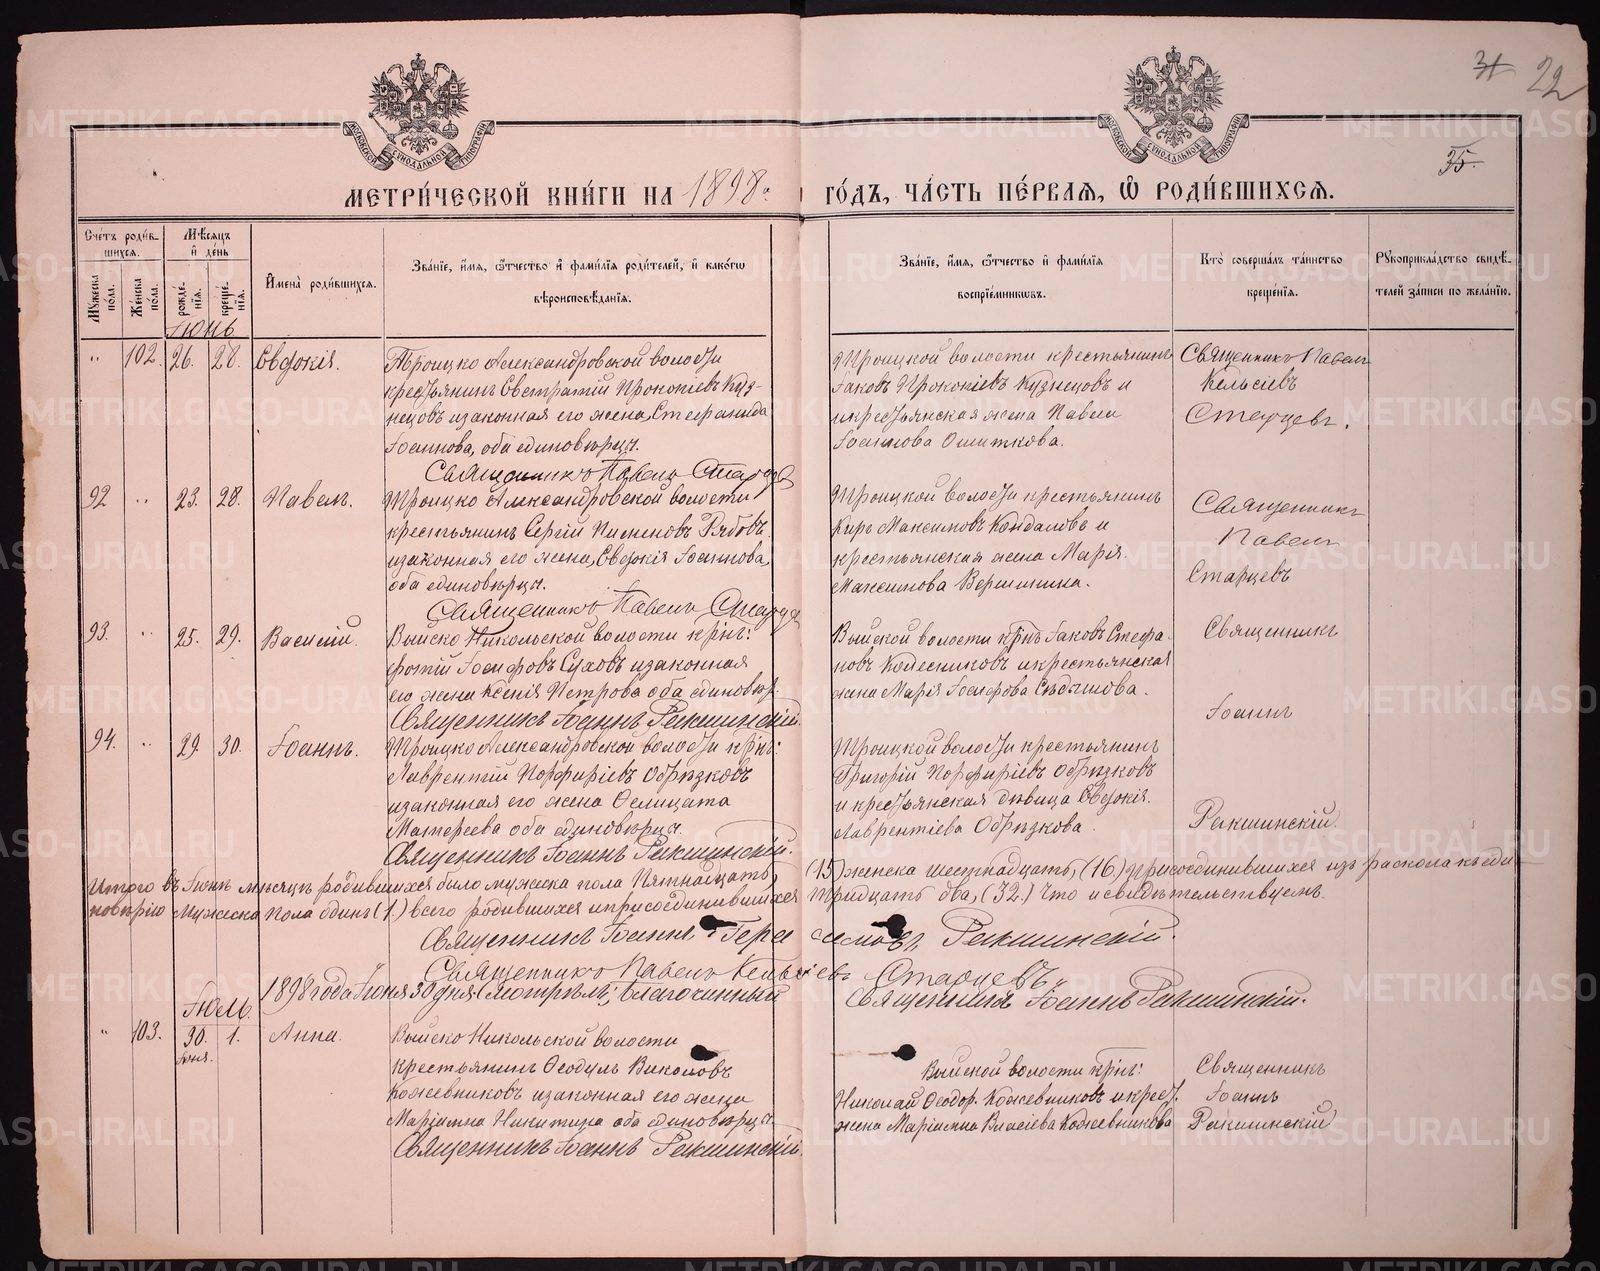 31 22
35.
МЕТРИ́ЧЕСКОЙ КНИ́ГИ НА 1898 ГО́ДЪ, ЧА́СТЬ ПЕ́РВАЯ, Ѡ РОДИ́ВШИХСЯ.
МОСКОВСКОЙ СѴНОДАЛЬНОЙ ТИПОГРАФІИ
МОСКОВСКОЙ СѴНОДАЛЬНОЙ ТИПОГРАФІИ
Сче́тъ роди́вшихся.
Мꙋ́жеска по́ла.
Же́нска по́ла.
Мѣ́сяцъ и҆ де́нь
рожде́нїя.
креще́нїя.
И҆мена̀ роди́вшихся.
Зва́нїе, и҆́мя, ѻ҆́тчество и҆ фами́лїя роди́телей, и҆ како́гѡ вѣроисповѣ́данїя.
Зва́нїе, и҆́мя, ѻ҆́тчество и҆ фами́лїя воспрїе́мникѡвъ.
Кто̀ соверша́лъ та́инство креще́нїя.
Рꙋкоприкла́дство свидѣ́телей за́писи по жела́нїю.
Іюнь
„ 102. 26. 28. Евдокія.
Троицко Александровской волости
крестьянинъ Евстратій Прокопіевъ Куз-
нецовъ и законная его жена, Стефанида
Іоаннова, оба единовѣрцы.
Священникъ Павелъ Старцев
Троицкой волости крестьянинъ
Іаковъ Прокопіевъ Кузнецовъ и
и крестьянская жена
Іоаннова
Священникъ Павелъ
Кельсіевъ
Старцевъ.
92 „ 23. 28. Павелъ.
Троицко Александровской волости
крестьянинъ Сергій Пименовъ Рябовъ
и законная его жена, Евдокія Іоаннова,
оба единовѣрцы.
Священникъ Павелъ Старцев
Троицкой волости крестьянинъ
Киръ Максимовъ Кондаловъ и
крестьянская жена Марія
Максимова Вершинина.
Священникъ
Павелъ
Старцевъ
93. „ 25. 29. Василій.
Выйско Никольской волости крінъ:
Фотій Іосифовъ Суховъ и законная
его жена Ксенія Петрова оба единовѣр.
Священникъ Іоаннъ Ракшинскій.
Выйской волости крінъ Іаковъ Стефа-
новъ Колесниковъ и крестьянская
жена Марія Іосифова
Священникъ
Іоаннъ
94. „ 29. 30. Іоаннъ.
Троицко Александровской волости крінъ:
Лаврентій Порфиріевъ Обрѣзковъ
и законная его жена Фелицата
оба единовѣрцы.
Священникъ Іоаннъ Ракшинскій.
Троицкой волости крестьянинъ
Григорій Порфиріевъ Обрѣзковъ
и крестьянская дѣвица Евдокія
Лаврентіева Обрѣзкова.
Ракшинскій.
Итого въ Іюнѣ мѣсяцѣ родившихся было мужеска пола Пятнадцать, (15) женска шестнадцать, (16) присоединившихся изъ раскола къ еди-
новѣрію мужеска пола одинъ (1.) всего родившихся и присоединившихся тридцать два, (32.) Что и свидѣтельствуемъ.
Священникъ Іоаннъ Герасимовъ Ракшинскій.
Священникъ Павелъ Кельсіевъ Старцевъ.
1898 года Іюня 30 дня смотрѣлъ: благочинный Священникъ Іоаннъ Ракшинскій.
Іюль.
„ 103. 30. Іюня. 1. Анна.
Выйско Никольской волости
крестьянинъ Феодулъ
Кожевниковъ и законная его жена
Маріамна Никитина оба единовѣрцы.
Священникъ Іоаннъ Ракшинскій.
Выйской волости крінъ:
Николай Феодор. Кожевниковъ и крест.
жена Маріамна Власіева Кожевникова
Священникъ
Іоаннъ
Ракшинскій
METRIKI.GASO-URAL.RU